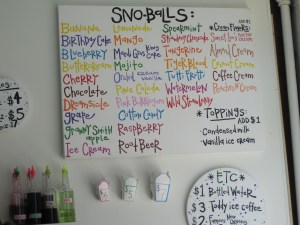 SNO-BALLS:
Banana
Birthday Cake
Blueberry
Buttercream
Cherry
Chocolate
Dreamsicle
grape
Granny Smith apple
Ice Cream
Lemonade
Mango
Mardi Gras King Cake
Mojito
Orchid Cream Vanilla
Pina Colada
Pink Bubblegum
Cotton Candy
Raspberry
Root Beer
Spearmint
Strawberry
Tangerine
Tiger Blood
Tutti Frutti
Watermelon
Wild Strawberry
*Cream Flavors:
Almond Cream
Coconut Cream
Coffee Cream
Peaches & Cream
*TOPPINGS:
ADD $1
*Condensed milk
Vanilla ice cream
$4
$5
*ETC*
$1 Bottled Water
$3 Toddy iced coffee
$2